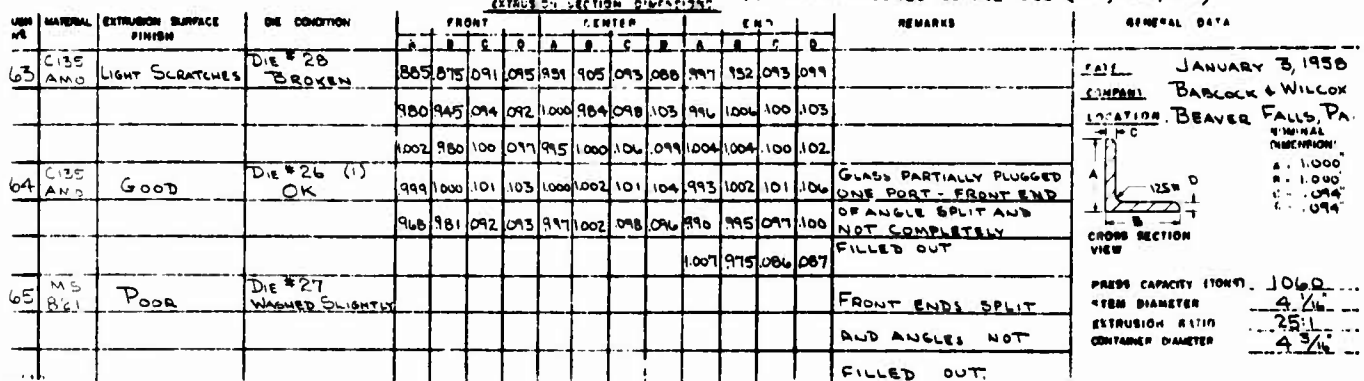 EXTRUSION SECTION DIMENSIONS
MATERIAL EXTRUSION SURFACE FINISH DIE CONDITION FRONT CENTER END REMARKS GENERAL DATA
A B C D A B C D A B C D
63 C135 AMO LIGHT SCRATCHES DIE #28 BROKEN .885 .875 .091 .095 .939 .905 .093 .088 .997 .932 .093 .099
.980 .945 .094 .092 1.000 .984 .098 .103 .996 1.006 .100 .103
1.002 .980 .100 .097 .995 1.000 .106 .099 1.004 1.004 .100 .102
64 C135 AMO GOOD DIE #26 (1) OK .999 1.000 .101 .103 1.000 1.002 .101 .104 .993 1.002 .101 .106 GLASS PARTIALLY PLUGGED
ONE PORT - FRONT END
.968 .981 .092 .093 .997 1.002 .098 .096 .990 .995 .097 .100 OF ANGLE SPLIT AND
NOT COMPLETELY
1.007 .975 .086 .087 FILLED OUT
65 MS DIE #27
POOR WASHED SLIGHTLY FRONT ENDS SPLIT
AND ANGLES NOT
FILLED OUT.
DATE JANUARY 3, 1958
COMPANY BABCOCK & WILCOX
LOCATION BEAVER FALLS, PA.
NOMINAL DIMENSION
A = 1.000"
B = 1.000"
C = .094"
D = .094"
C
A
.125R D
B
CROSS SECTION
VIEW
PRESS CAPACITY (TONS) 1060
STEM DIAMETER 4 1/16"
EXTRUSION RATIO 25:1
CONTAINER DIAMETER 4 3/16"